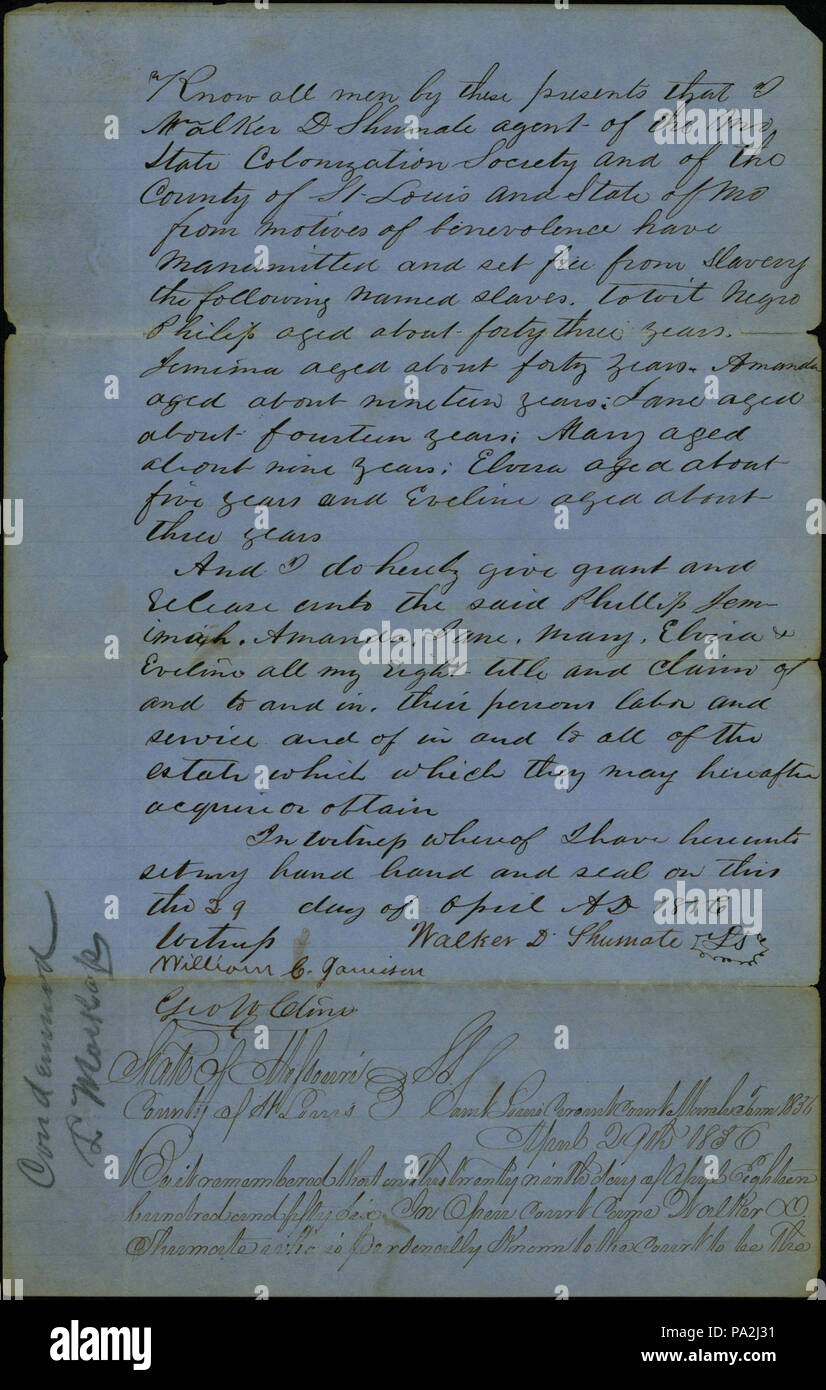 Know all men by these presents that I
Walker D Shumate agent of the Mo,
State Colonization Society and of the
County of St Louis and State of Mo
from motives of benevolence have
manumitted and set free from Slavery
the following named slaves. towit Negro
Philip aged about forty three years.
Jemima aged about forty years. Amanda
aged about nineteen years; Jane aged
about fourteen years; Mary aged
about nine years; Elvira aged about
five years and Eveline aged about
three years
And I do hereby give grant and
release unto the said Phillip Jem-
imah. Amanda. Jane. Mary. Elvira &
Eveline all my right title and claim of
and to and in. their persons labor and
service and of in and to all of the
estate which which they may hereafter
acquire or obtain
In witness whereof I have hereunto
set my hand hand and seal on this
the 29 day of April AD 1856
Witness Walker D. Shumate Ls
William C. Jamison
Geo W Cline
State of Missouri } SS
County of St Louis } Saint Louis Circuit Court March Term 1856
April 29th 1856
Be it remembered that on this twenty ninth day of April Eighteen
hundred and fifty six In Open Court Came Walker D
Shumate who is personally Known to the court to be the
Condemned
alamy
a
alamy stock photo
PA2J31
www.alamy.com